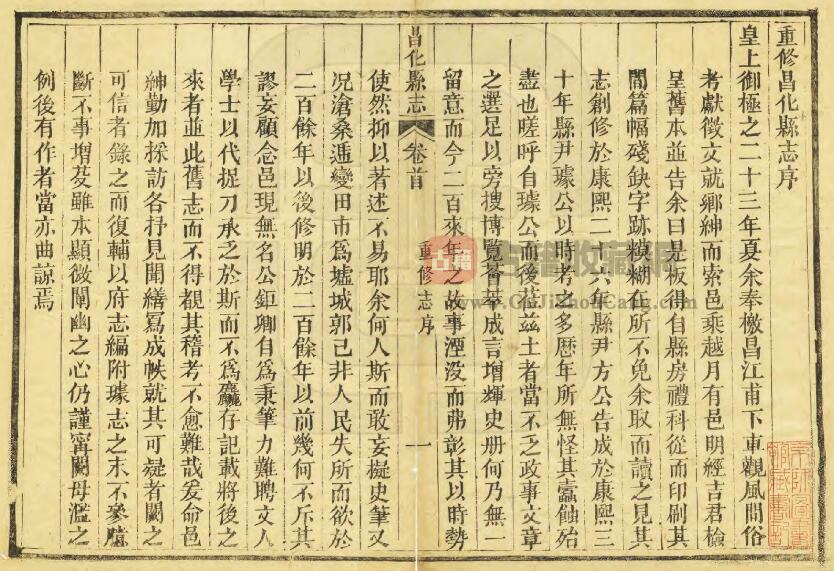 重修昌化縣志序
皇上御極之二十三年夏余奉檄昌江甫下車觀風問俗
考獻徵文就鄉紳而索邑乘越月有邑明經吉君檢
呈舊本並告余曰是板得自縣房禮科從而印刷其
間篇幅殘缺字跡模糊在所不免余取而讀之見其
志創修於康熙二十六年縣尹方公告成於康熙三
十年縣尹璩公以時考之多歷年所無怪其蠹蝕殆
盡也嗟呼自璩公而後蒞茲土者當不乏政事文章
之選足以旁搜博覽薈萃成言增輝史册何乃無一
留意而今二百來年之故事湮没而弗彰其以時勢
昌化縣志
卷首
重修志序
一
使然抑以著述不易耶余何人斯而敢妄擬史筆又
况滄桑遞變田市爲墟城郭已非人民失所而欲於
二百餘年以後修明於二百餘年以前幾何不斥其
謬妄顧念邑現無名公鉅卿自爲秉筆力難聘文人
學士以代捉刀承乏於斯而不爲麤存記載將後之
來者並此舊志而不得覩其稽考不愈難哉爰命邑
紳勤加採訪各抒見聞繕冩成帙就其可疑者闕之
可信者錄之而復輔以府志編附璩志之末不參臆
斷不事増芟雖本顯微闡幽之心仍謹甯闕毋濫之
例後有作者當亦曲諒焉
古籍收藏網